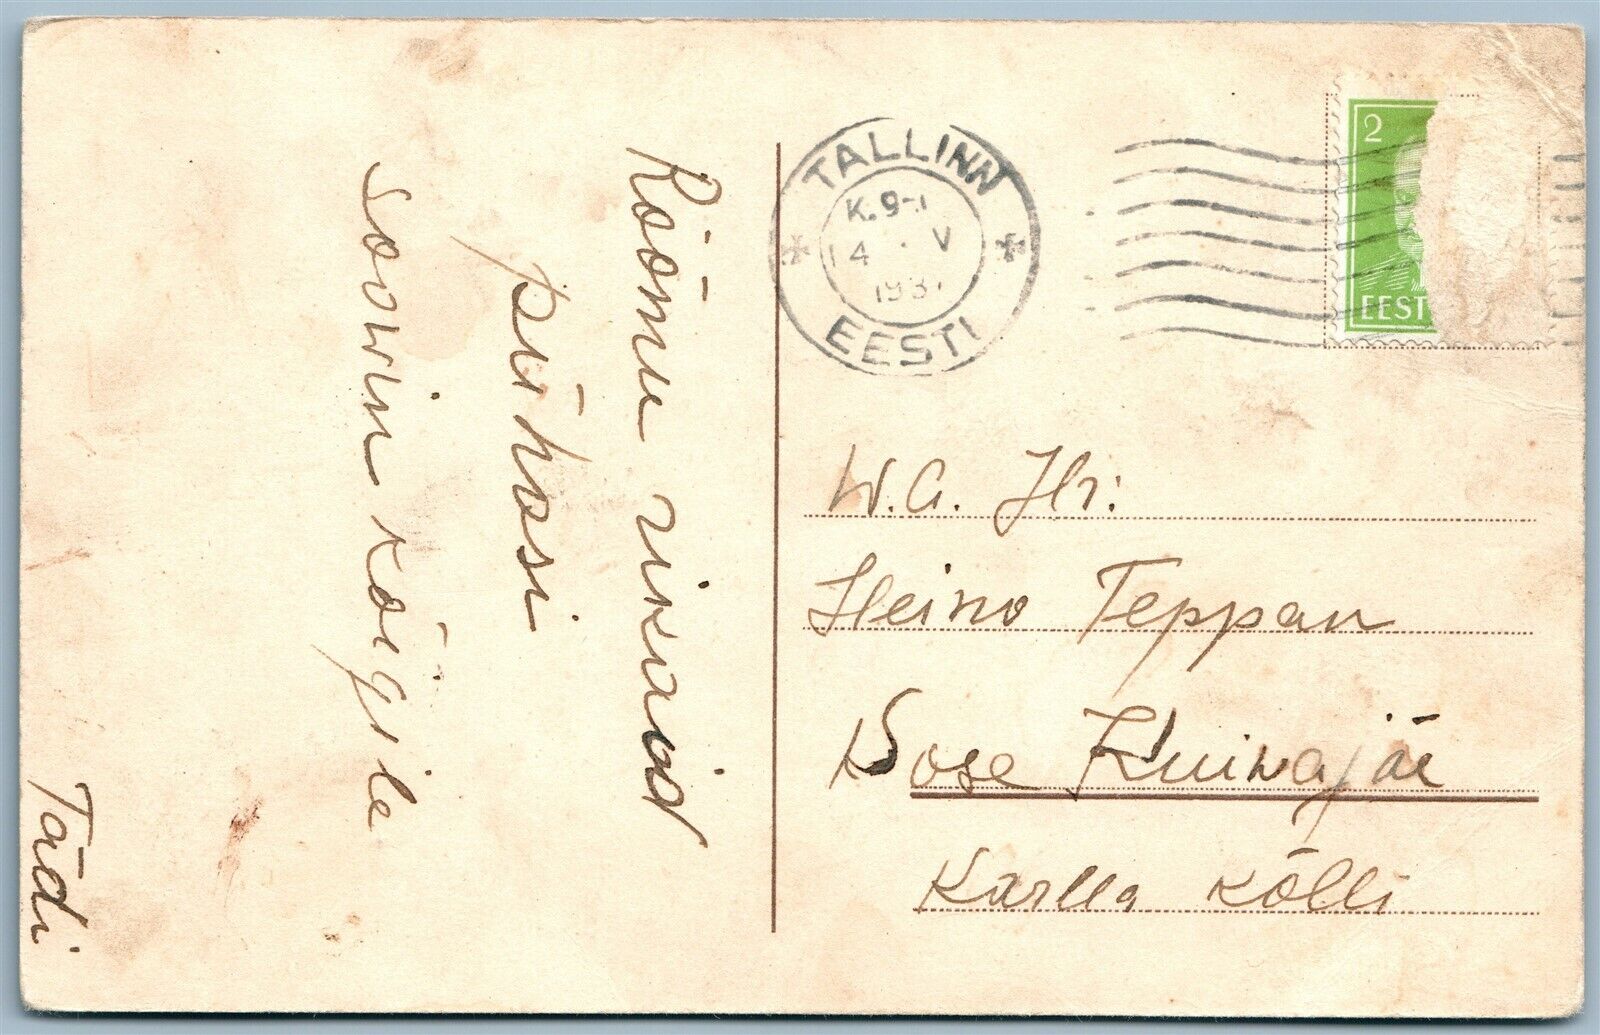 Rõõmu rikkaid
pühasi
soovin kõigile
Tädi
TALLINN
K. 9-
14 . V
193
EESTI
2
EEST
W.A. Hr:
Heino Teppan
Kose Kuiwajõe
Karlla Kõlli